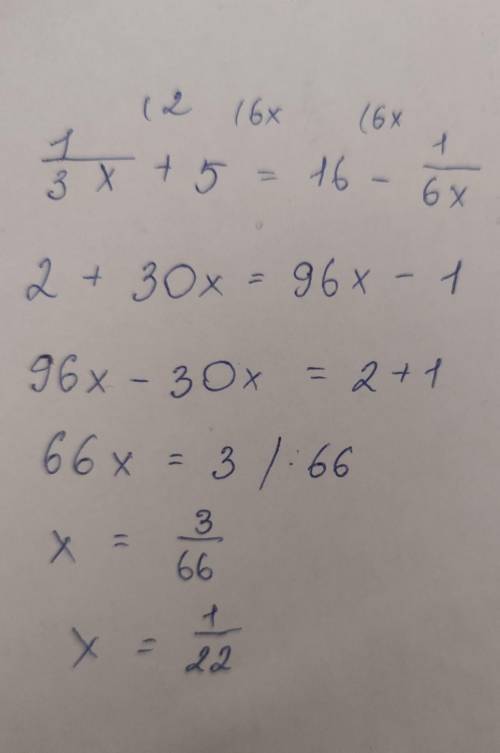 (2 (6x (6x
1/(3x) + 5 = 16 - 1/(6x)
2 + 30x = 96x - 1
96x - 30x = 2 + 1
66x = 3 /: 66
x = 3/66
x = 1/22